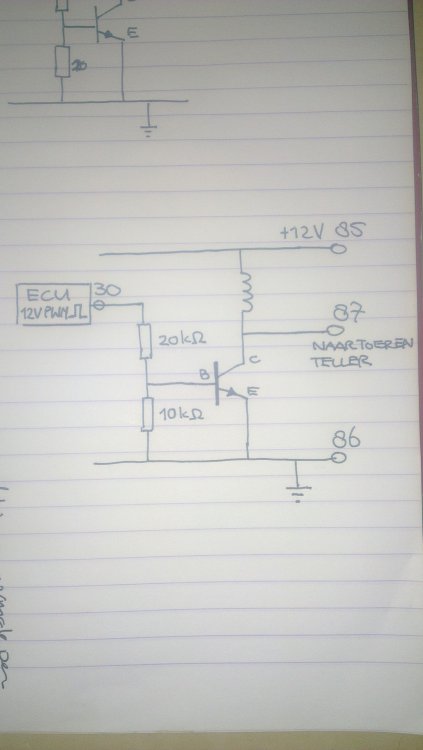 E
+12V 85
ECU 30
12V PWM
20kΩ
87
NAAR TOEREN
TELLER
C
B
E
10kΩ
86